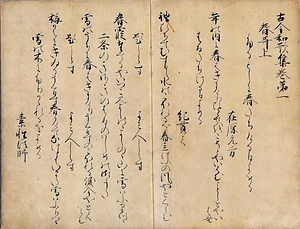 古今和歌集巻第一
春哥上
ふるとしに春たちける日よめる
在原元方
年の内に春はきにけりひとゝせをこそとやい
はむことしとやいはむ
春たちける日よめる
紀貫之
袖ひちてむすひし水のこほれるを春立けふの風やとくらむ
題しらす
よみ人しらす
春霞たてるやいつこみよしのゝよしのゝ山に雪はふりつゝ
二条のきさきの春のはしめの御うた
雪の内に春はきにけり鶯のこほれる涙今やとくらむ
題しらす
よみ人しらす
梅かえにきゐる鶯春かけてなけともいまた雪はふりつゝ
雪の木にふりかゝれるをよめる
素性法師